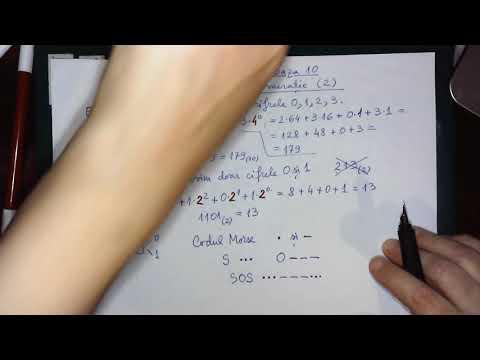 baza 10
numerație (2)
cifrele 0, 1, 2, 3.
3·4⁰ = 2·64 + 3·16 + 0·1 + 3·1 =
= 128 + 48 + 0 + 3 =
= 179
= 179(10)
doar cifrele 0 și 1
213(2)
+ 1·2² + 0·2¹ + 1·2⁰ = 8 + 4 + 0 + 1 = 13
1101(2) = 13
0
1
Codul Morse · și –
S ··· O – – –
SOS ··· – – – ···